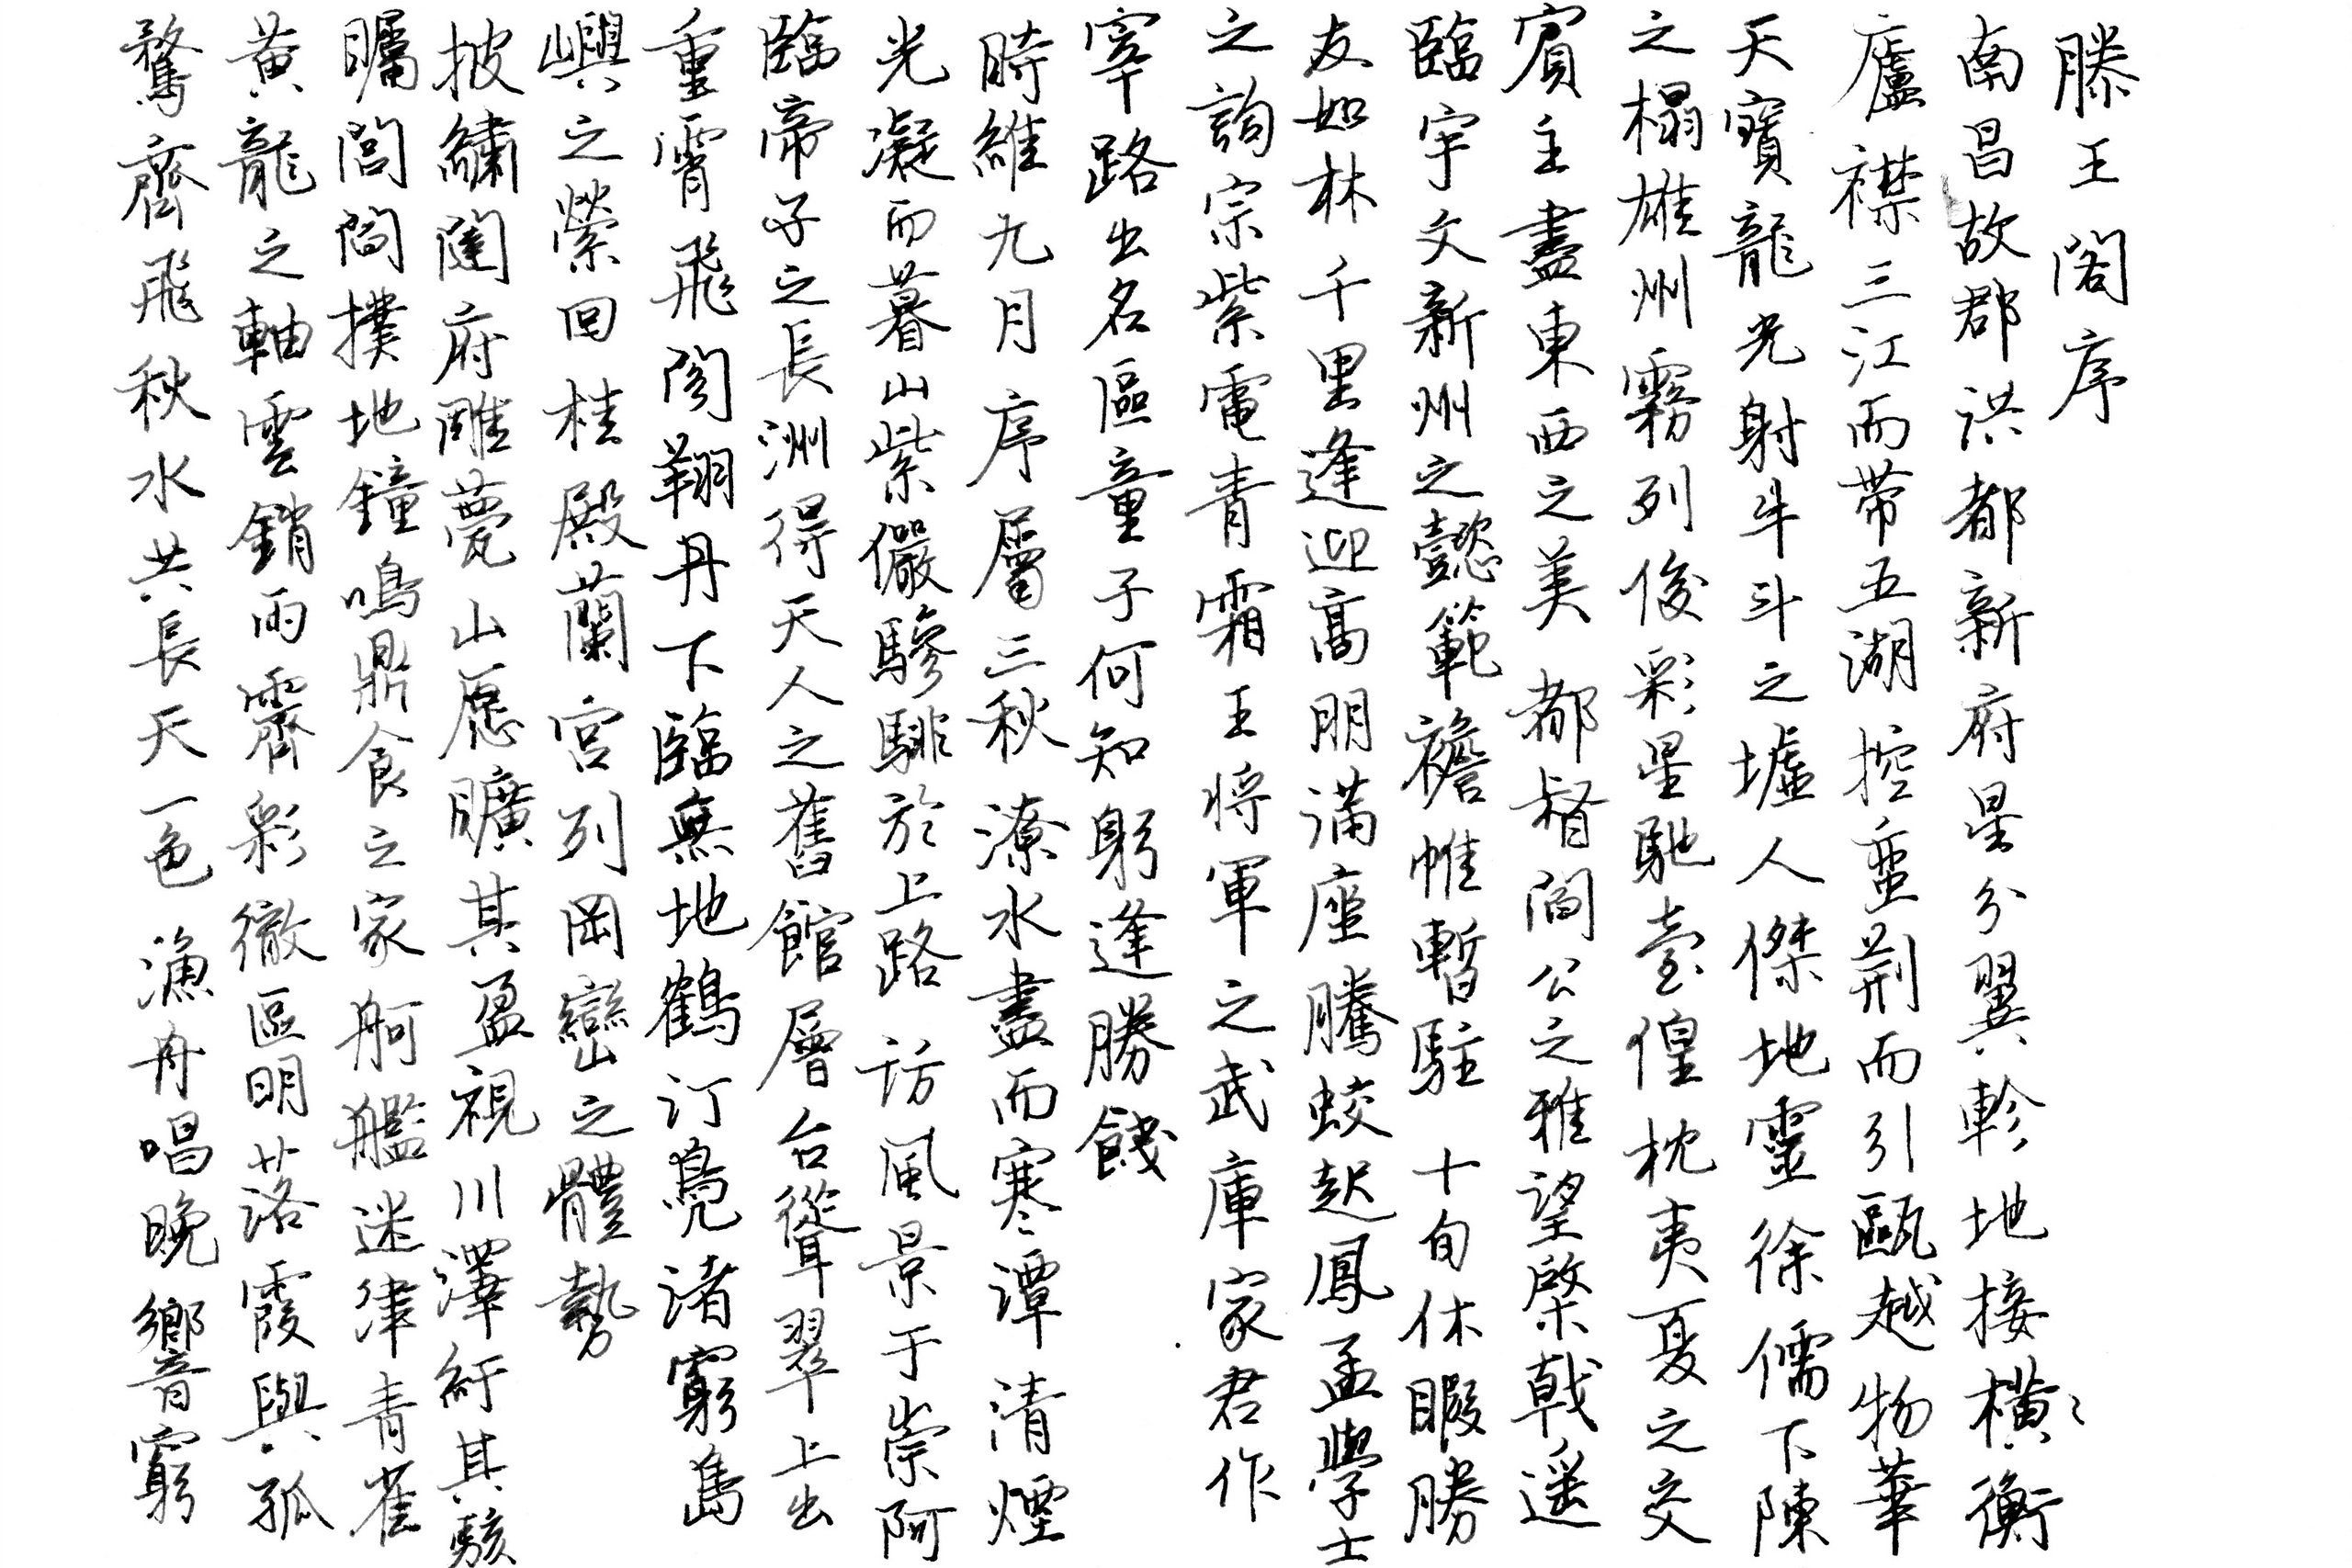 滕王閣序
南昌故郡洪都新府星分翼軫地接橫衡
廬襟三江而帶五湖控蛮荆而引甌越物華
天寶龍光射牛斗之墟人傑地靈徐儒下陳
之榻雄州霧列俊彩星馳臺偟枕夷夏之交
賓主盡東西之美都督閻公之雅望棨戟遥
臨宇文新州之懿範襜帷暫駐十旬休暇勝
友如林千里逢迎高朋滿座騰蛟起鳳孟學士
之詞宗紫電青霜王将軍之武庫家君作
宰路出名區童子何知躬逢勝餞
時維九月序屬三秋潦水盡而寒潭清煙
光凝而暮山紫儼驂騑於上路访風景于崇阿
臨帝子之長洲得天人之舊館層台聳翠上出
重霄飛閣翔丹下臨無地鶴汀鳧渚窮島
嶼之縈回桂殿蘭宮列岡巒之體勢
披繡闥府雕甍山愿曠其盈視川澤紆其駭
矚閭閻撲地鐘鳴鼎食之家舸艦迷津青雀
黄龍之軸雲銷雨霽彩徹區明落霞與孤
鶩齊飛秋水共長天一色漁舟唱晚響窮